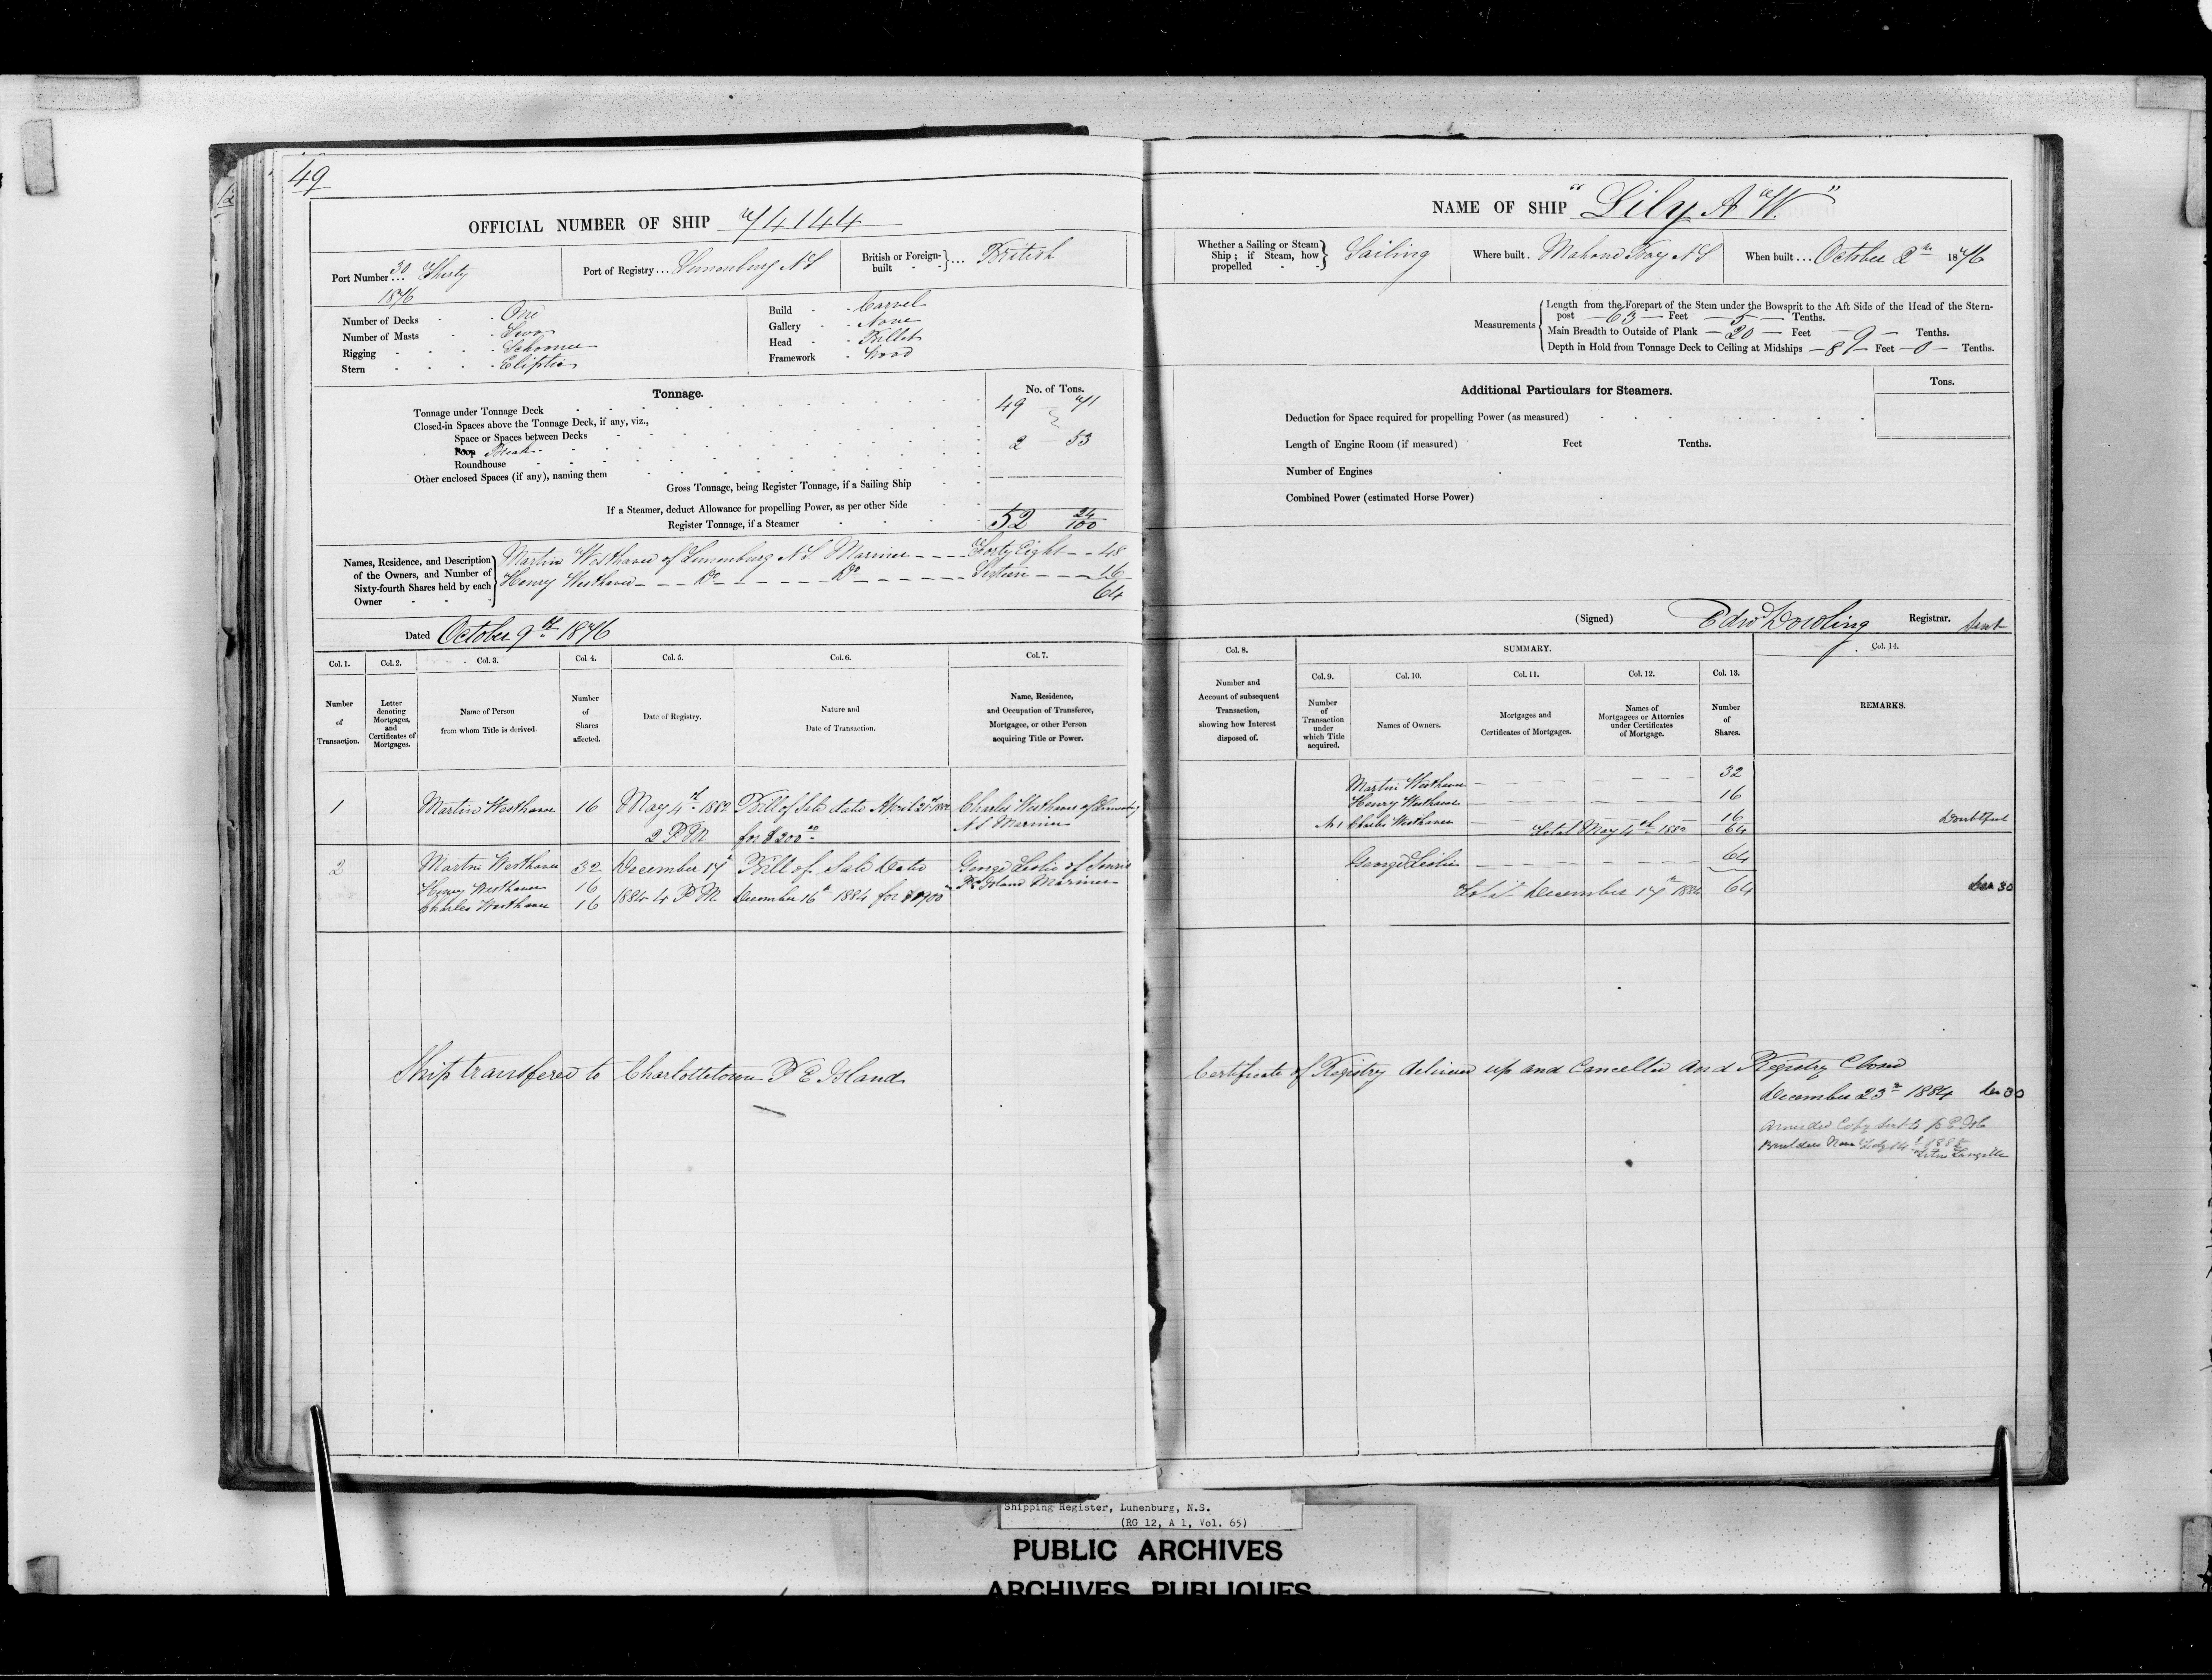 49
OFFICIAL NUMBER OF SHIP 74144
Port Number 30 Thirty
1876
Port of Registry... Lunenburg N S
British or Foreign-built ... British
Number of Decks - One
Number of Masts - Two
Rigging - Schooner
Stern - Eliptic
Build - Carvel
Gallery - None
Head - Billet
Framework - Wood
Tonnage.
No. of Tons.
Tonnage under Tonnage Deck 49 71
Closed-in Spaces above the Tonnage Deck, if any, viz.,
Space or Spaces between Decks
Poop Break 2 53
Roundhouse
Other enclosed Spaces (if any), naming them
Gross Tonnage, being Register Tonnage, if a Sailing Ship
If a Steamer, deduct Allowance for propelling Power, as per other Side
Register Tonnage, if a Steamer 52 24/100
Names, Residence, and Description of the Owners, and Number of Sixty-fourth Shares held by each Owner
Martin Westhaver of Lunenburg N.S. Mariner - - - Forty Eight - - 48
Henry Westhaver - - - Do - - - - - Do - - - - - Sixteen - - - 16
64
Dated October 9th 1876
Col. 1. Col. 2. Col. 3. Col. 4. Col. 5. Col. 6. Col. 7.
Number of Transaction.
Letter denoting Mortgages, and Certificates of Mortgages.
Name of Person from whom Title is derived.
Number of Shares affected.
Date of Registry.
Nature and Date of Transaction.
Name, Residence, and Occupation of Transferee, Mortgagee, or other Person acquiring Title or Power.
1 Martin Westhaver 16 May 4th 1882 Bill of Sale date April Charles Westhaver of Lunenburg
2 P M for $200.00 N S Mariner
2 Martin Westhaver 32 December 17th Bill of Sale Date George Leslie of Souris
Henry Westhaver 16 1884 4 P M December 16th 1884 for P E Island Mariner
Charles Westhaver 16
Ship transfered to Charlottetown P E Island
NAME OF SHIP "Lily A W."
Whether a Sailing or Steam Ship; if Steam, how propelled Sailing
Where built. Mahone Bay N S
When built... October 2nd 1876
Measurements
Length from the Forepart of the Stem under the Bowsprit to the Aft Side of the Head of the Stern-
post — 63 — Feet — 5 — Tenths.
Main Breadth to Outside of Plank — 20 — Feet — 9 — Tenths.
Depth in Hold from Tonnage Deck to Ceiling at Midships — 8 — Feet — 0 — Tenths.
Additional Particulars for Steamers.
Tons.
Deduction for Space required for propelling Power (as measured)
Length of Engine Room (if measured) Feet Tenths.
Number of Engines
Combined Power (estimated Horse Power)
(Signed) Edwd Dowling Registrar. Sent
Col. 8. SUMMARY. Col. 14.
Col. 9. Col. 10. Col. 11. Col. 12. Col. 13.
Number and Account of subsequent Transaction, showing how Interest disposed of.
Number of Transaction under which Title acquired.
Names of Owners.
Mortgages and Certificates of Mortgages.
Names of Mortgagees or Attornies under Certificates of Mortgage.
Number of Shares.
REMARKS.
Martin Westhaver 32
Henry Westhaver 16
No 1 Charles Westhaver 16 Doubtful
Total May 4th 64
George Leslie 64
Total December 17th 1884 64 Dec 30
Certificate of Registry delivered up and Cancelled and Registry Closed
December 23rd 1884 Dec 30
Amended Copy sent to P E Isle
Builders Name
Shipping Register, Lunenburg, N.S.
(RG 12, A 1, Vol. 65)
PUBLIC ARCHIVES
ARCHIVES PUBLIQUES